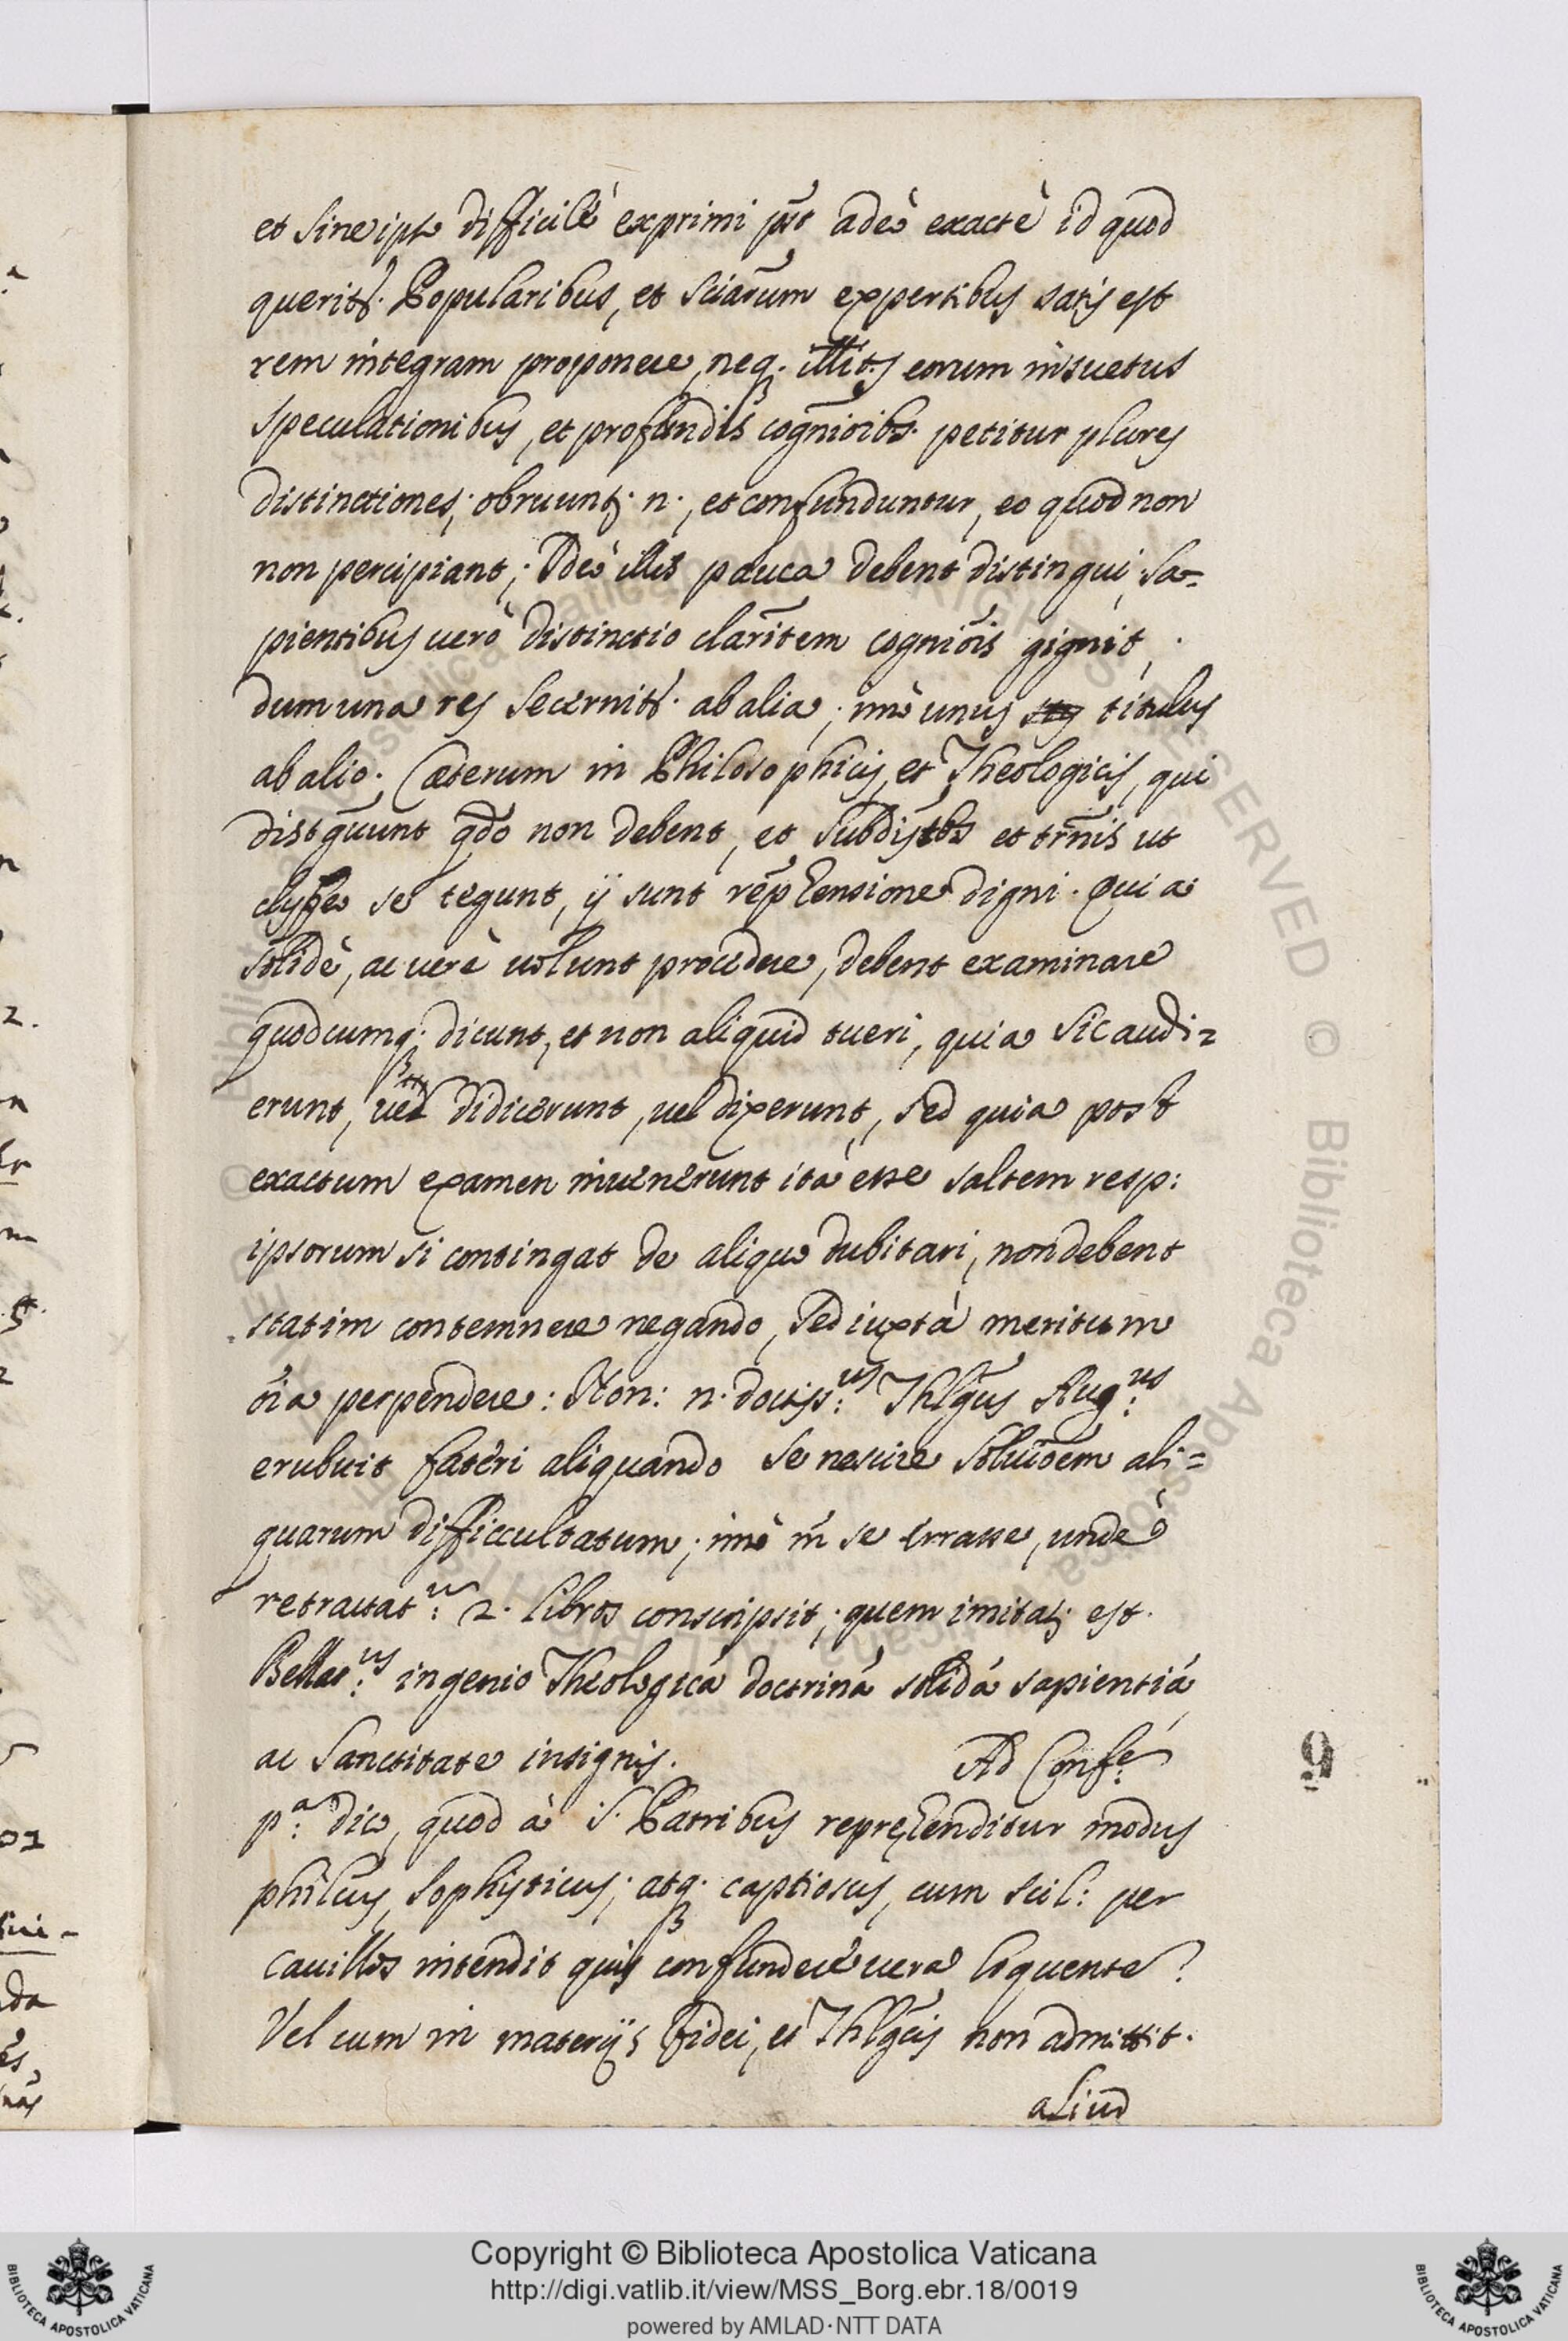 et sine ipso difficilè exprimi pn̄t adeò exactè id quod
querit̄r. Popularibus, et sciarum expertibus satis est
rem integram proponere, neq. eorum insuetus
speculationibus, et profundis cognioibs. petitur plures
distinctiones; obruunt. n., et confunduntur, eo quod non
non percipiant; Ideò illis pauca debent distingui, sa-
pientibus uerò distinctio claritem cogniois gignit,
dum una res secernitr. ab alia; imò unus titulus
ab alio. Cæterum in Philosophicis, et Theologicis, qui
distguunt qdo non debent, et subdistbs et trnis ut
clypeo se tegunt, ij sunt repræhensione digni. Quia
solidè, ac uerè uolunt procedere, debent examinare
quodcumq. dicunt, et non aliquid tueri, quia sic audi-
erunt, uel didicerunt, uel dixerunt, sed quia post
exactum examen inuenerunt ità esse saltem resp:
ipsorum si contingat de aliquo dubitari, non debent
statim contemnere negando, sed iuxtà meritum
oīa perpendere: Non: n. doctiss:us Thlgus Aug:us
erubuit fateri aliquando se nescire soluioem ali-
quarum difficultatum; imò in se errasse, undè
retractat: 2. libros conscripsit; quem imitats est.
Bellar:us ingenio Theologicá doctriná solidá sapientiá
ac Sanctitate insignis. Ad Confe:
p:a dico, quod à S. Patribus repręhenditur modus
philcus, sophisticus; atq. captiosus, cum scil: per
cauillos intendit quis confundere uera loquente?
Vel cum in materijs fidei, et Thlgcis non admittit.
aliud
6
Copyright © Biblioteca Apostolica Vaticana
http://digi.vatlib.it/view/MSS_Borg.ebr.18/0019
powered by AMLAD·NTT DATA